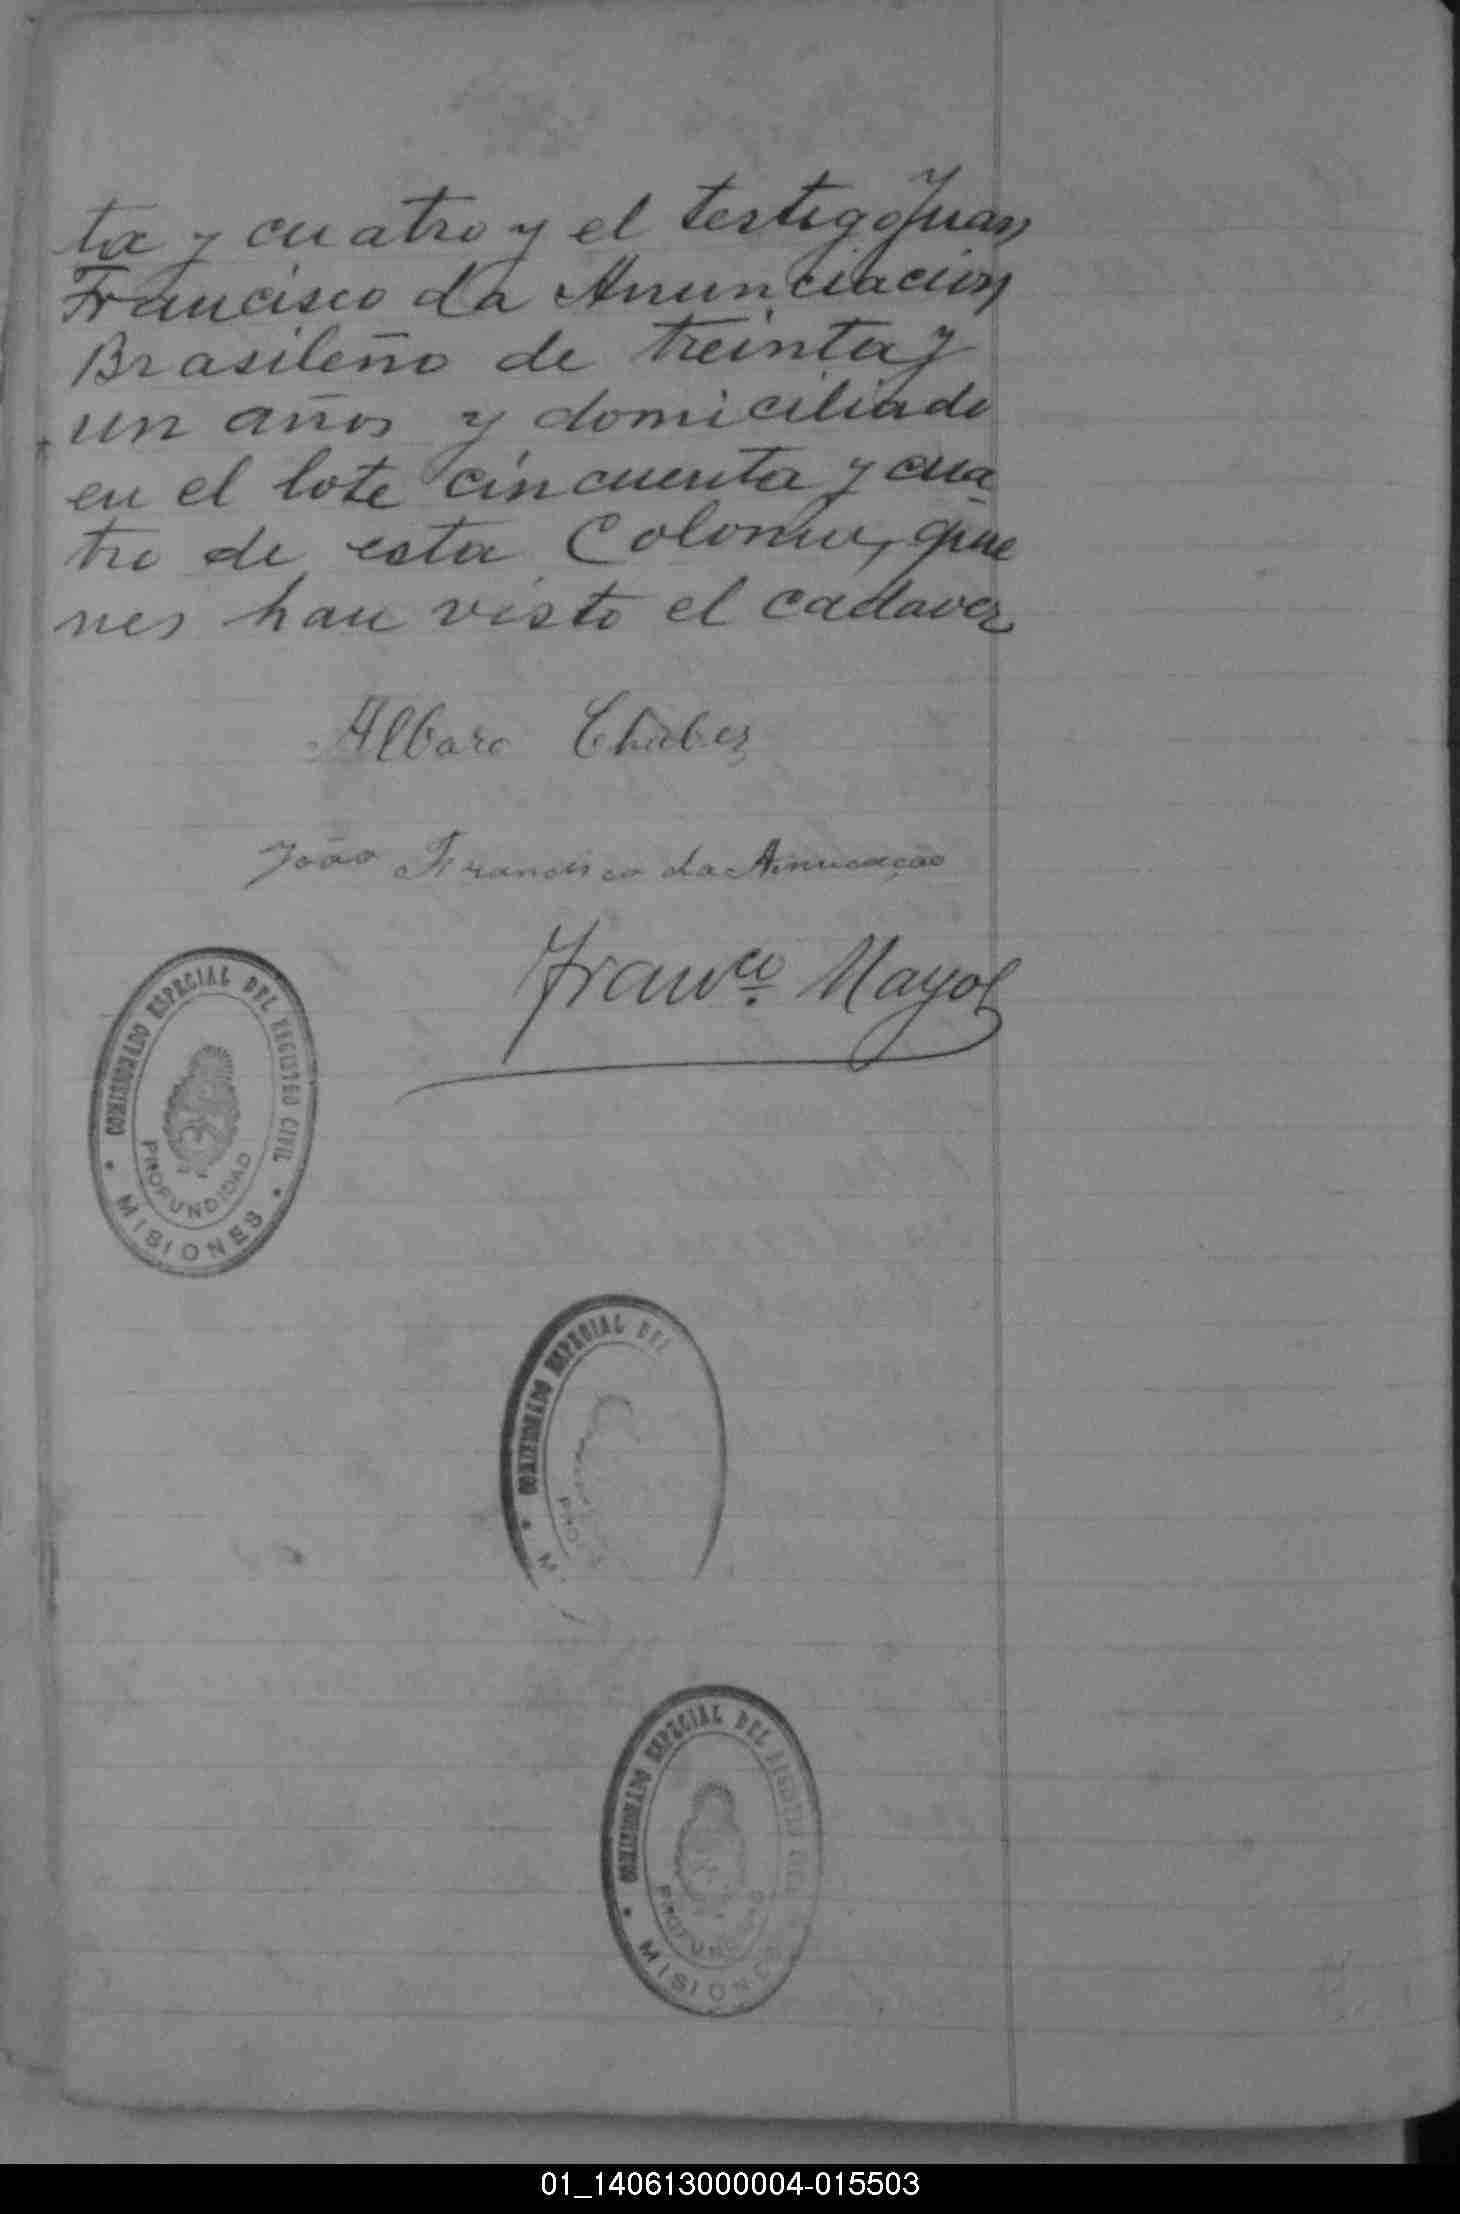 ta y cuatro y el testigo Juan
Francisco da Anunciacion
Brasileño de treinta y
un años y domiciliado
en el lote cincuenta y cua
tro de esta Colonia, quie
nes han visto el cadaver
Albaro Chabes
João Francisco da
Franco. Mayol
COMISIONADO ESPECIAL DEL REGISTRO CIVIL
PROFUNDIDAD
• MISIONES •
COMISIONADO ESPECIAL DEL
PRO
• M
COMISIONADO ESPECIAL DEL REGISTRO CIVIL
PROFUNDIDAD
• MISIONES
01_140613000004-015503